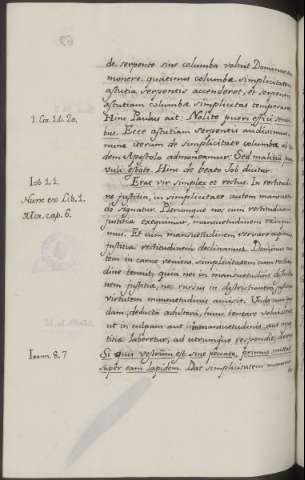 de serpente sive columba voluit Dominus ad
monere, quatenus columbæ simplicitatem
astutia serpentis accenderet, et serpentis
astutiam columbæ simplicitas temperaret.
1. Cor. 14. 20. Hinc Paulus ait: Nolite pueri effici sensi
bus. Ecce astutiam serpentis audivimus,
nunc iterum de simplicitate columbæ ab eo
dem Apostolo admoneamur: Sed malitia par
vuli estote. Hinc de beato Job dicitur:
Iob. 1. 1. Erat vir simplex et rectus. In rectitudi
Nunc ex Lib. 1. ne justitia, in simplicitate autem mansuetu
Mor. cap. 6. do signatur. Plerumque nos cum rectitudinem
justitiæ exequimur, mansuetudinem relinqui
mus. Et cum mansuetudinem servare
justitiæ rectitudinem declinamus. Dominus
tem in carne veniens simplicitatem cum rectitu
dine tenuit, quia nec in mansuetudine
nem justitiæ, nec rursus in districtione justitiæ
virtutem mansuetudinis amisit. Unde cum
dam, deducta adultera, hunc tentare voluissent
ut in culpam aut inmansuetudinis, aut
titiæ laberetur, ad utrumque respondit, dicens
Ioan. 8. 7 Si quis vestrum est sine peccato, primus mittat
super eam lapidem. Dat simplicitatem